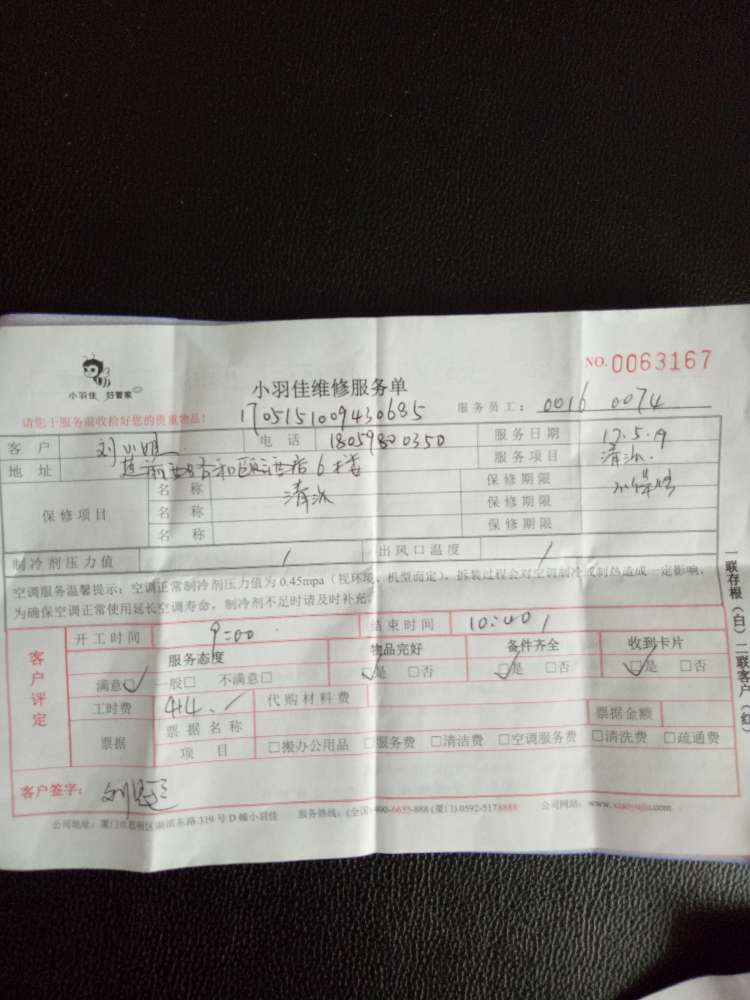 小羽佳 好管家
小羽佳维修服务单
NO. 0063167
请您于服务前收拾好您的贵重物品!
1705151009430685
服务员工: 0016 0074
客户 刘 电话 18059800350 服务日期 17.5.19
地址 6楼 服务项目 清洗.
保修项目 名称 清洗 保修期限
名称 保修期限
名称 保修期限
制冷剂压力值 / 出风口温度 /
空调服务温馨提示:空调正常制冷剂压力值为 0.45mpa(视环境、机型而定),拆装过程会对空调制冷或制热造成一定影响,
为确保空调正常使用延长空调寿命,制冷剂不足时请及时补充。
客户评定
开工时间 9:00 结束时间 10:40
服务态度 物品完好 备件齐全 收到卡片
满意☑ 一般□ 不满意□ ☑是 □否 ☑是 □否 ☑是 □否
工时费 414. / 代购材料费
票据 票据名称 票据金额
项目 □搬办公用品 □服务费 □清洁费 □空调服务费 □清洗费 □疏通费
客户签字: 刘
公司地址:厦门市思明区湖滨东路 319 号 D 幢小羽佳 服务热线:(全国)400-6655-888 (厦门) 0592-5178888 公司网站:www.xiaoyujia.com
一联存根(白)二联客户(红)